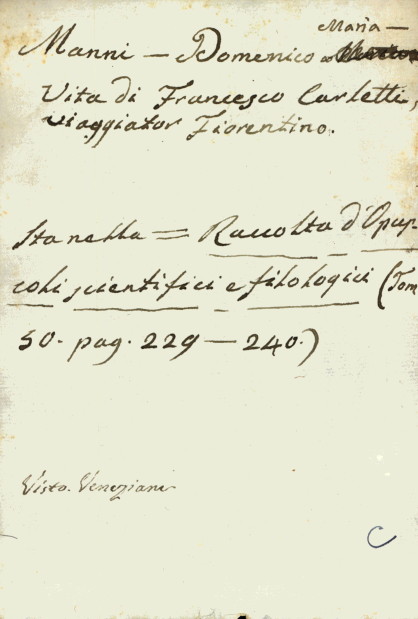 Maria —
Manni — Domenico
Vita di Francesco Carletti,
viaggiator Fiorentino.
Sta nella = Raccolta d'Opus-
coli scientifici e filologici (Tom
50. pag. 229 — 240.)
Visto. Veneziani
C